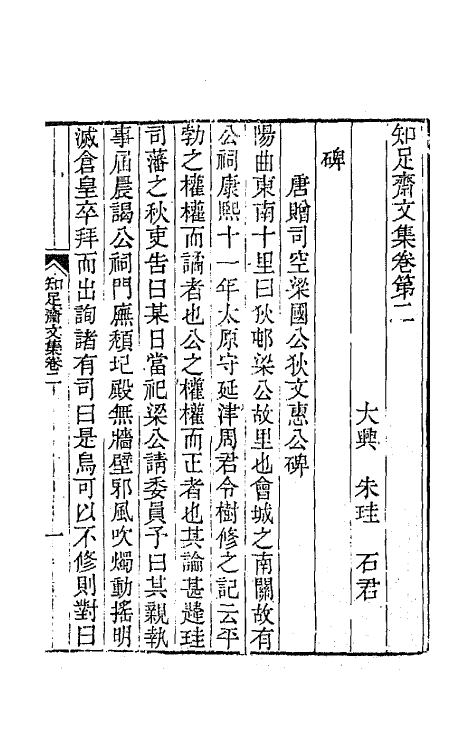 知足齋文集卷第二
大興　朱珪　石君
碑
唐贈司空梁國公狄文惠公碑
陽曲東南十里曰狄邨梁公故里也會城之南關故有
公祠康熙十一年太原守延津周君令樹修之記云平
勃之權權而譎者也公之權權而正者也其論甚韙珪
司藩之秋吏告曰某日當祀梁公請委員予曰其親執
事屆晨謁公祠門廡頹圮殿無牆壁邪風吹燭動搖明
滅倉皇卒拜而出詢諸有司曰是烏可以不修則對曰
知足齋文集卷二
一